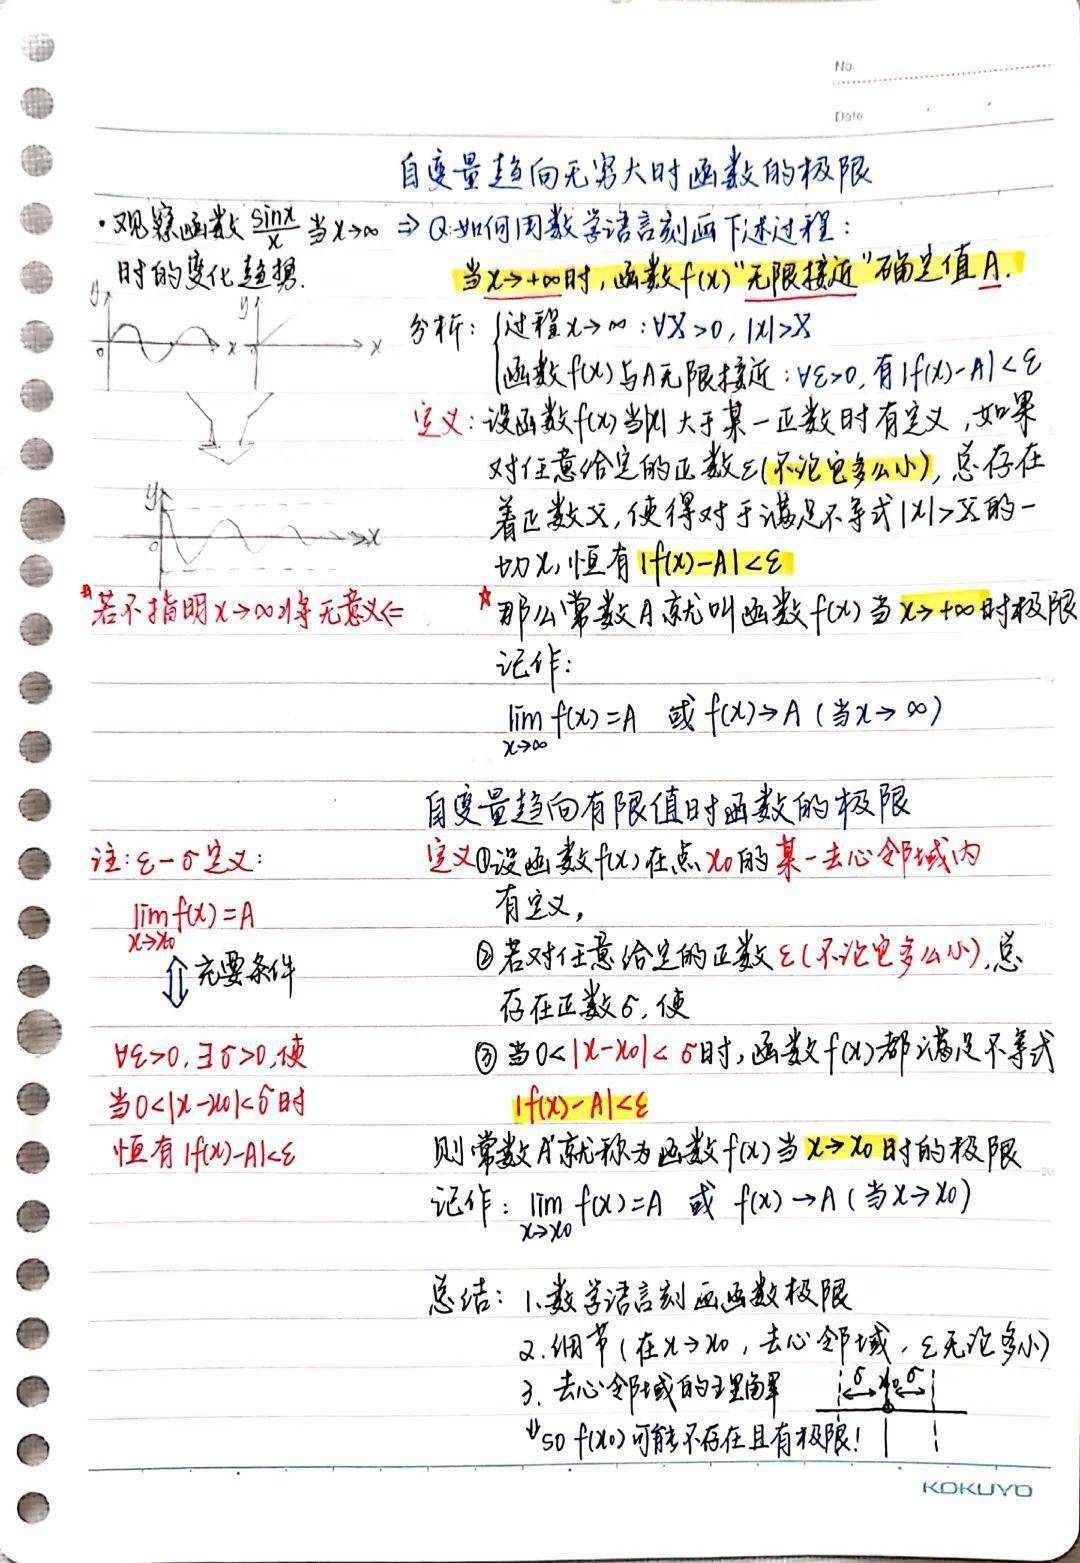 No.
Date
自变量趋向无穷大时函数的极限
·观察函数 sinx/x 当x→∞
时的变化趋势.
⇒ Q:如何用数学语言刻画下述过程:
当x→+∞时,函数f(x)"无限接近"确定值A.
y
o
x
y
o
x
分析:{过程x→∞:∀X>0,|x|>X
函数f(x)与A无限接近:∀ε>0,有|f(x)-A|<ε
定义:设函数f(x)当|x|大于某一正数时有定义,如果
对任意给定的正数ε(不论它多么小),总存在
着正数X,使得对于满足不等式|x|>X的一
切x,恒有|f(x)-A|<ε
y
o
x
若不指明x→∞将无意义⇐
☆那么常数A就叫函数f(x)当x→+∞时极限
记作:
lim f(x)=A 或 f(x)→A (当x→∞)
x→∞
自变量趋向有限值时函数的极限
注:ε-δ定义:
lim f(x)=A
x→x0
⇕充要条件
∀ε>0,∃δ>0,使
当0<|x-x0|<δ时
恒有|f(x)-A|<ε
定义①设函数f(x)在点x0的某一去心邻域内
有定义,
②若对任意给定的正数ε(不论它多么小),总
存在正数δ,使
③当0<|x-x0|<δ时,函数f(x)都满足不等式
|f(x)-A|<ε
则常数A就称为函数f(x)当x→x0时的极限
记作: lim f(x)=A 或 f(x)→A (当x→x0)
x→x0
总结: 1.数学语言刻画函数极限
2.细节(在x→x0,去心邻域,ε无论多小)
3.去心邻域的理解
δ x0 δ
⇓so f(x0)可能不存在且有极限!
KOKUYO